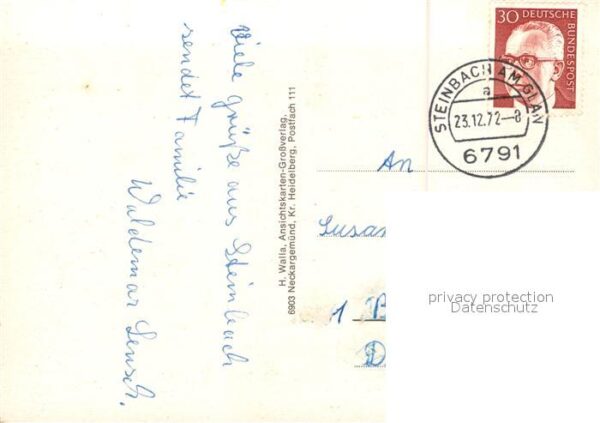 Viele grüße aus Steinbach
sendet Familie
Waldemar
H. Walla, Ansichtskarten-Großverlag,
6903 Neckargemünd, Kr. Heidelberg, Postfach 111
30 DEUTSCHE BUNDESPOST
STEINBACH AM GLAN
a
23.12.72-8
6791
An
Susan
1 B
D
privacy protection
Datenschutz